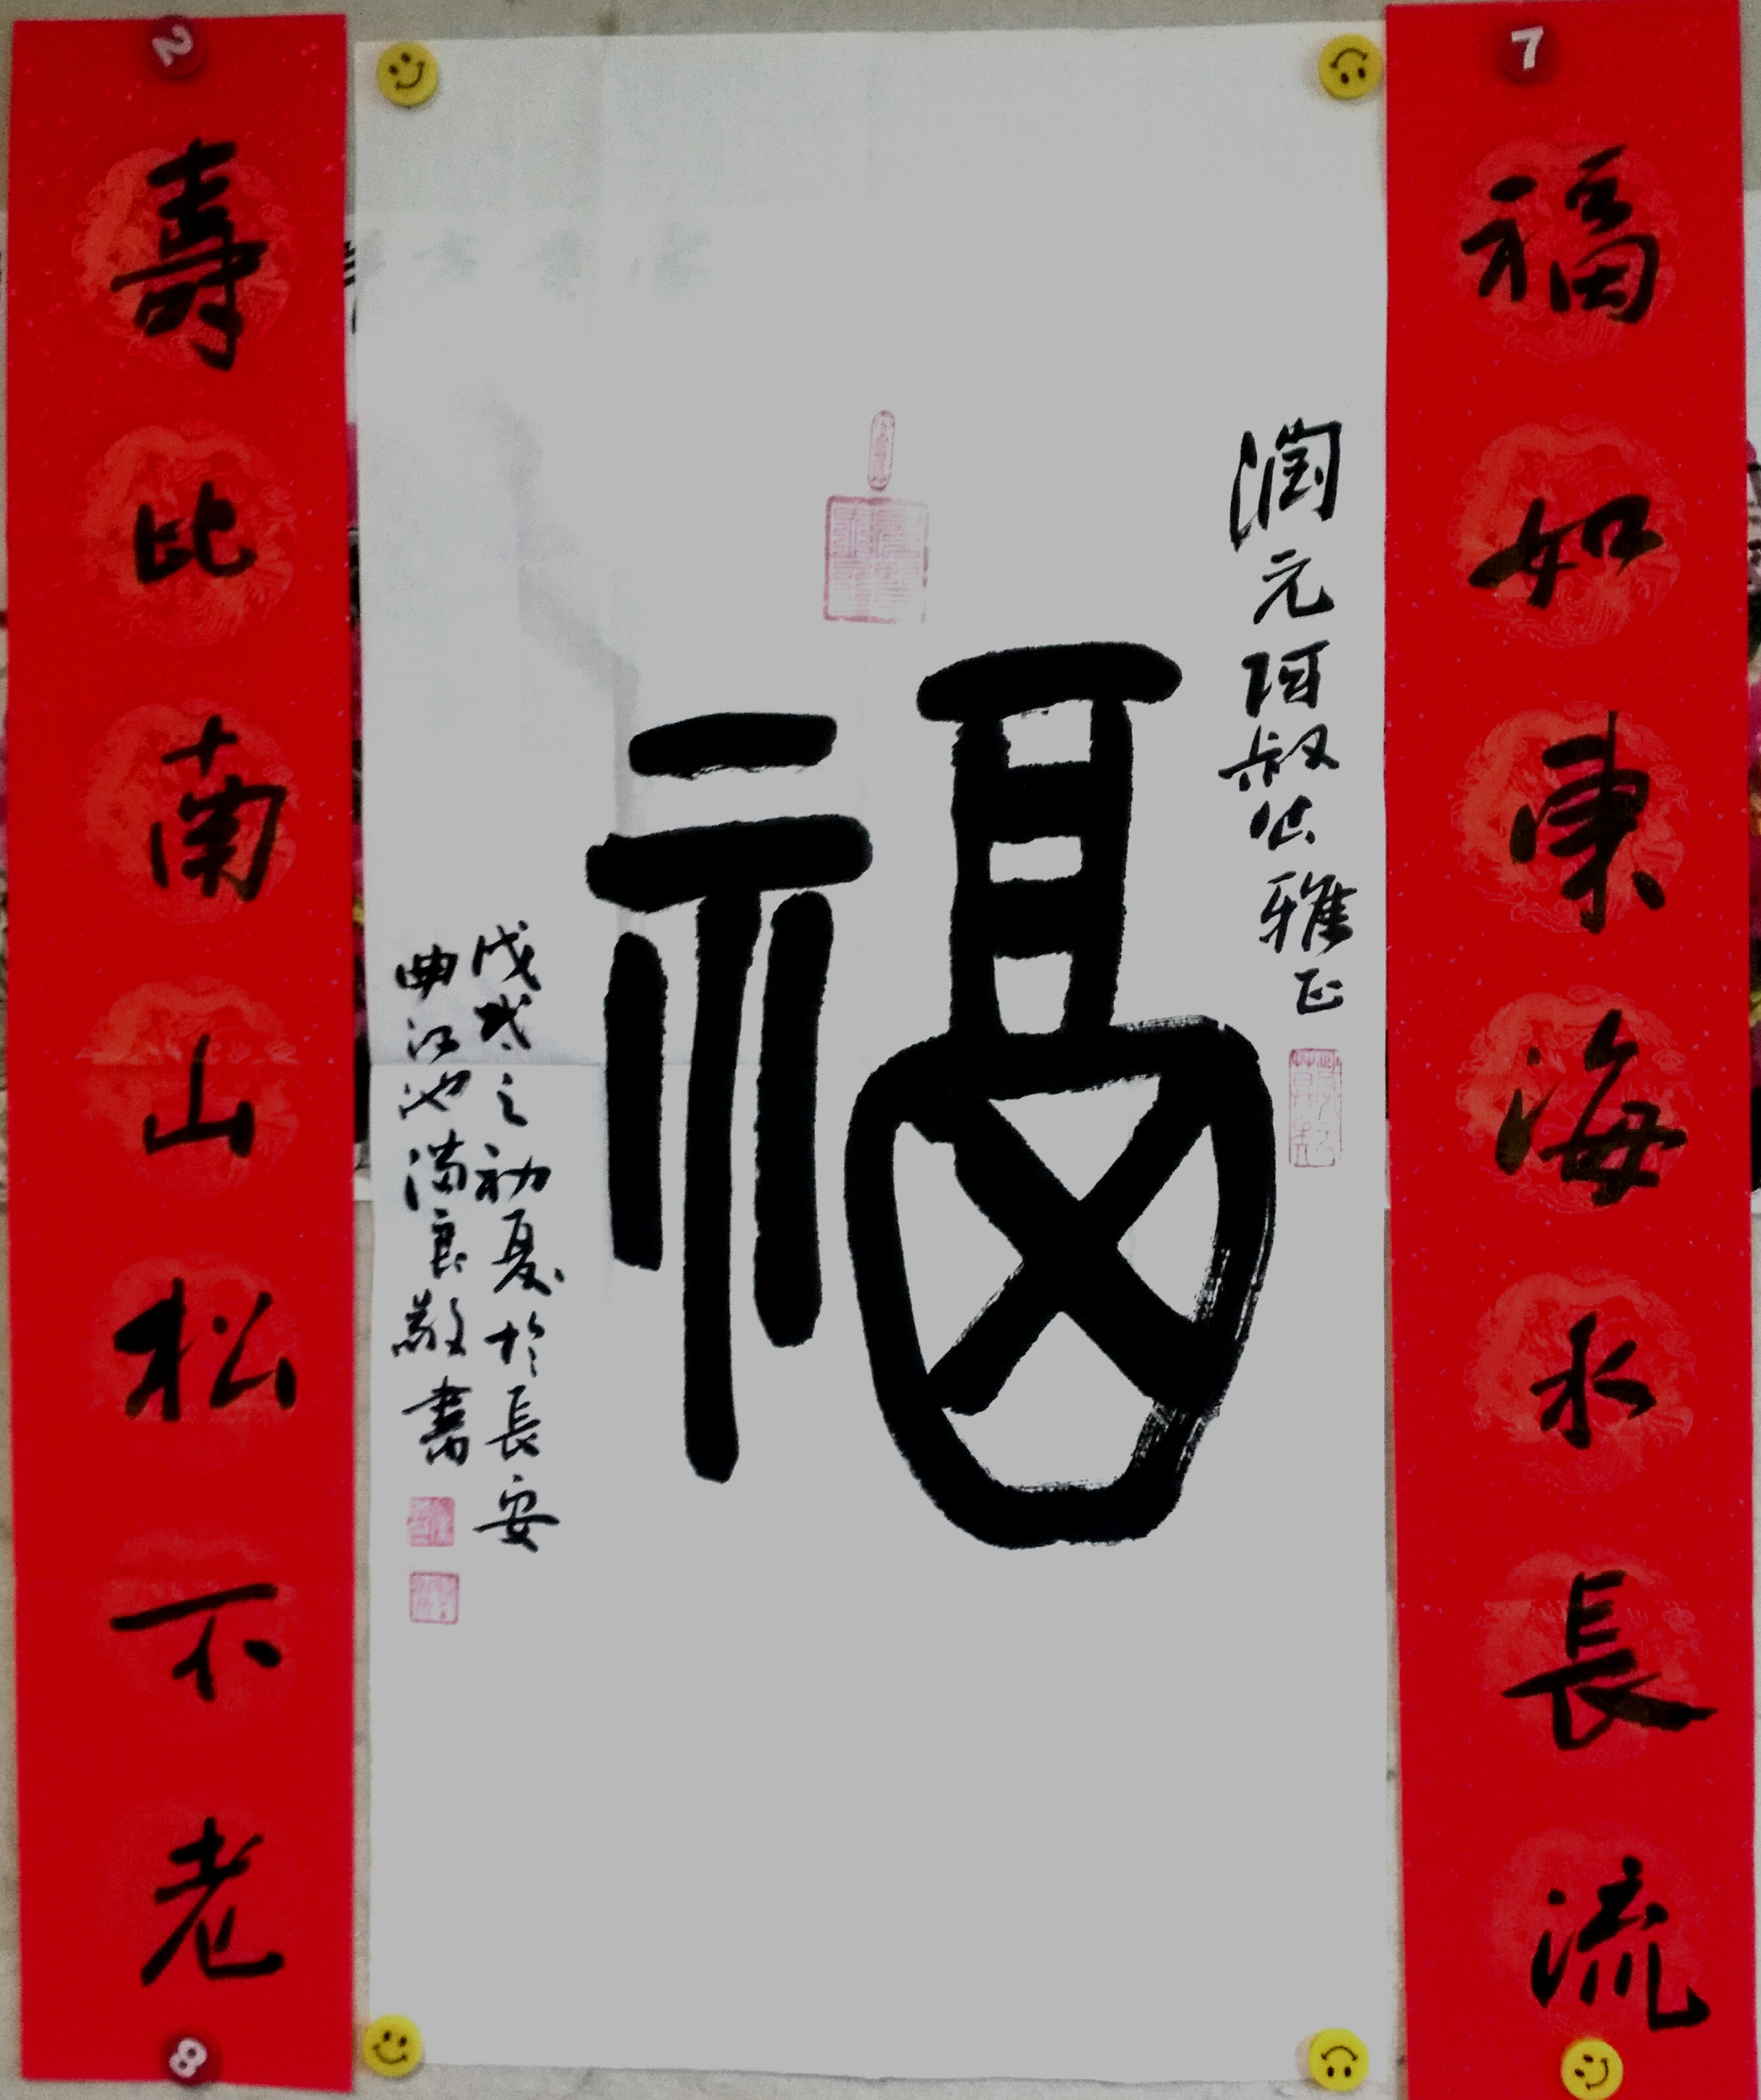 福如東海永長流
福
潤元阿叔公雅正
戊戌之初夏於長安
曲江池满良敬書
壽比南山松不老
7
2
8